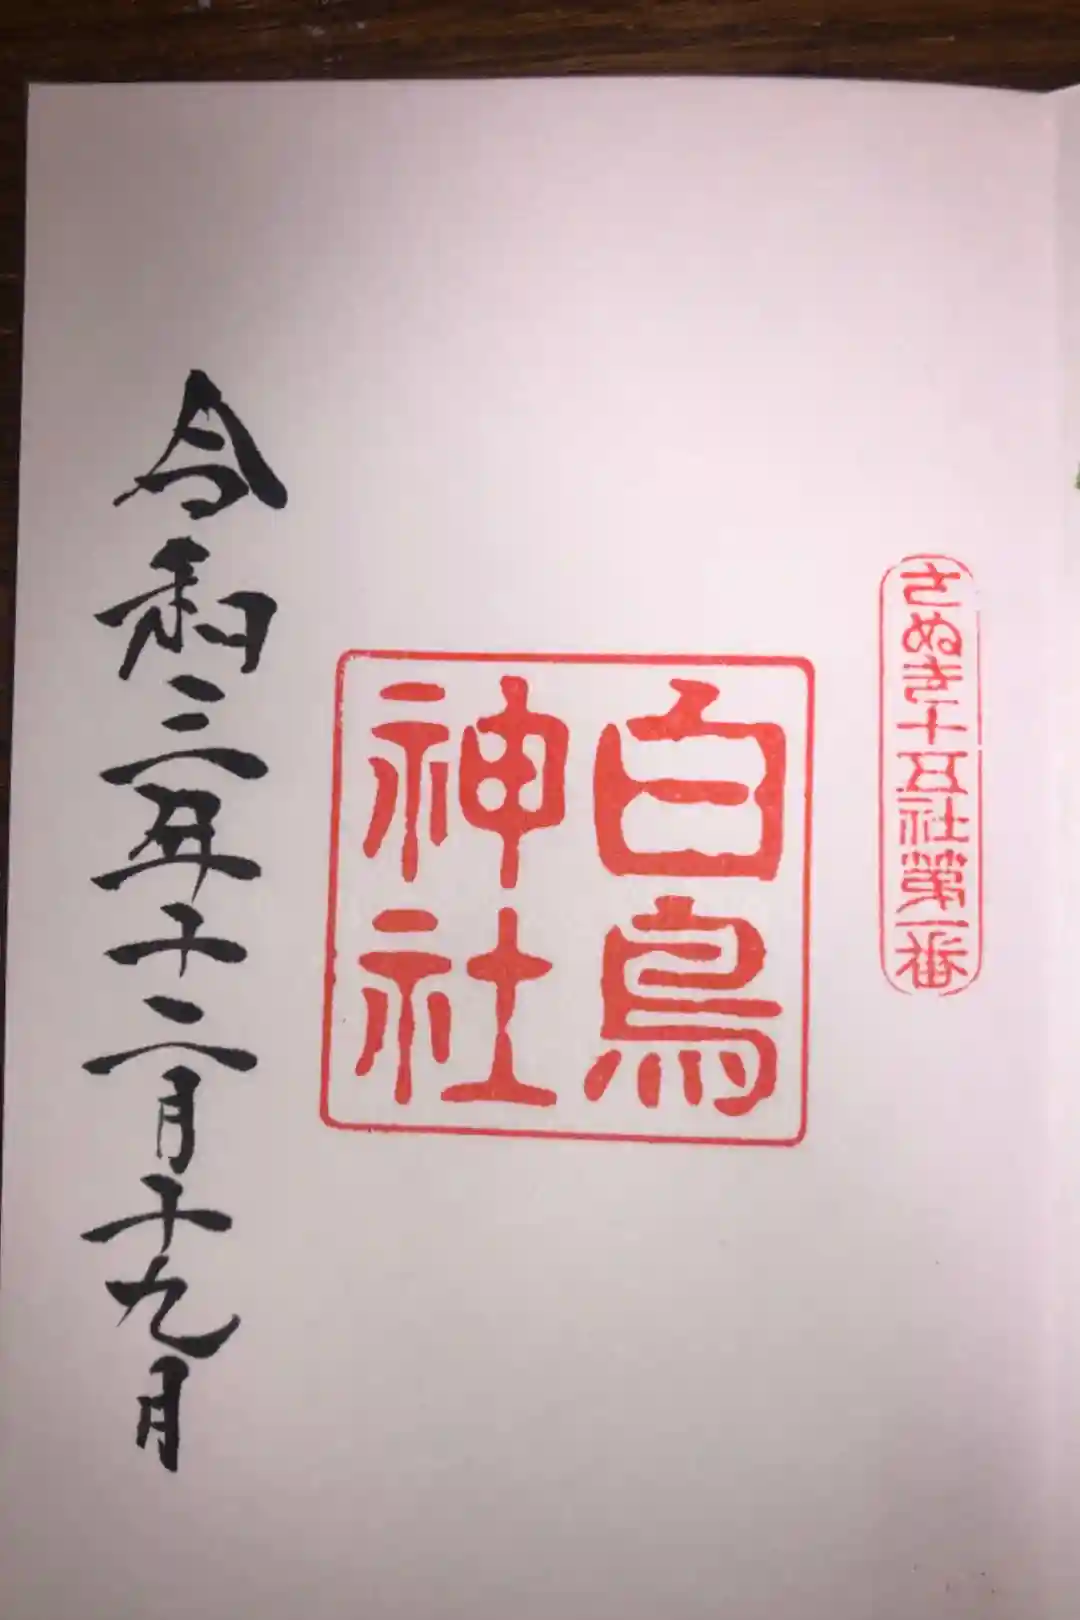 さぬき十五社第一番
白鳥
神社
令和三年十二月十九日